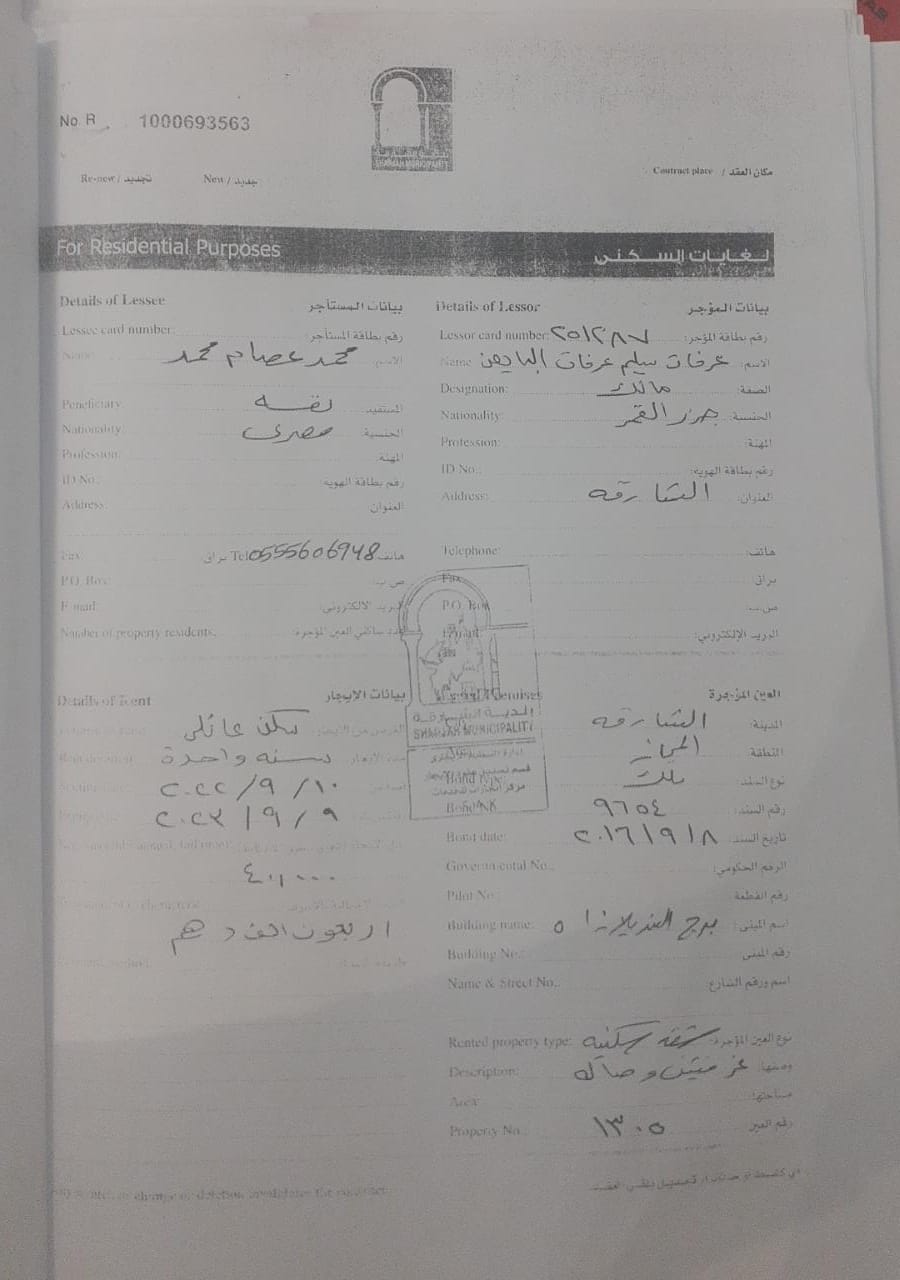 No R 1000693563
SHARJAH MUNICIPALITY
Re-new / تجديد New / جديد
Contract place / مكان العقد
For Residential Purposes لغايات السكنى
Details of Lessee بيانات المستأجر
Lessee card number: رقم بطاقة المستأجر:
Name: محمد عصام محمد الاسم:
Peneficiary: نفسه المستفيد
Nationality: مصرى الجنسية
Profession: المهنة
ID No.: رقم بطاقة الهوية
Address: العنوان
Fax براق Tel 0555606948 هاتف
P.O. Box: ص.ب:
E mail: البريد الالكتروني:
Number of property residents: عدد ساكني العين المؤجرة:
Details of Lessor بيانات المؤجر
Lessor card number: ٢٥١٢٨٧ رقم بطاقة المؤجر:
Name عرفات سليم عرفات الاسم:
Designation: مالك الصفة:
Nationality: جزر القمر الجنسية:
Profession: المهنة:
ID No.: رقم بطاقة الهوية:
Address: الشارقه العنوان:
Telephone: هاتف:
Fax براق
P.O. Box ص.ب:
Email: البريد الإلكتروني:
Details of Rent بيانات الايجار
سكن عائلى
سنه واحدة
٢٠٢٢/٩/١٠
٢٠٢٣/٩/٩
٤٠,٠٠٠
اربعون الف درهم
العين المؤجرة
الشارقه المدينة:
المجاز المنطقة
ملك نوع السند
٩٦٥٤ رقم السند:
Bond date: ٢٠١٦/٩/٨ تاريخ السند:
Governmental No.: الرقم الحكومي:
Pilot No.: رقم القطعة
Building name: برج ٥ اسم المبنى:
Building No.: رقم المبنى
Name & Street No.: اسم ورقم الشارع:
Rented property type: شقه سكنيه نوع العين المؤجرة:
Description: غرفتين وصاله وصفها:
Area: مساحتها:
Property No.: ١٣٠٥ رقم العين
المدينة الشارقة
SHARJAH MUNICIPALITY